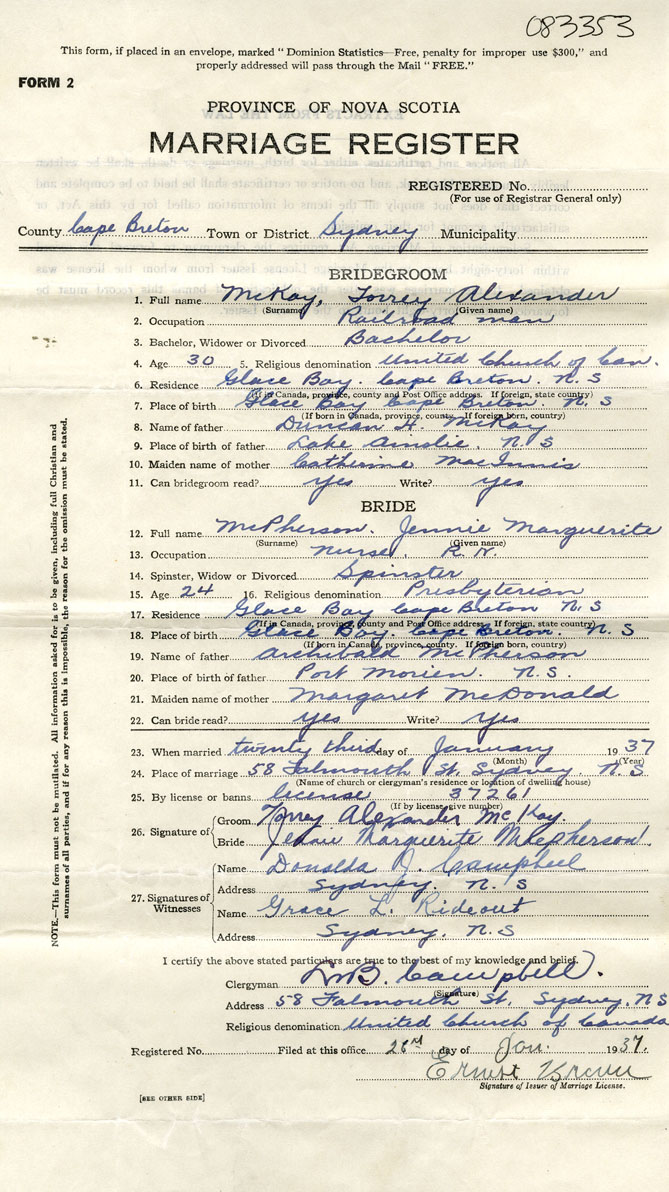 083353
This form, if placed in an envelope, marked "Dominion Statistics—Free, penalty for improper use $300," and
properly addressed will pass through the Mail "FREE."
FORM 2
PROVINCE OF NOVA SCOTIA
MARRIAGE REGISTER
REGISTERED No.
(For use of Registrar General only)
County Cape Breton Town or District Sydney Municipality
BRIDEGROOM
1. Full name McKay, Torrey Alexander
(Surname) (Given name)
2. Occupation Railroad man
3. Bachelor, Widower or Divorced Bachelor
4. Age 30 5. Religious denomination United Church of Can.
6. Residence Glace Bay. Cape Breton. N. S
(If in Canada, province, county and Post Office address. If foreign, state country)
7. Place of birth Glace Bay Cape Breton. N. S
(If born in Canada, province, county. If foreign born, country)
8. Name of father Duncan H. McKay
9. Place of birth of father Lake Ainslie. N. S
10. Maiden name of mother Catherine MacInnis
11. Can bridegroom read? yes Write? yes
BRIDE
12. Full name McPherson. Jennie Marguerite
(Surname) (Given name)
13. Occupation nurse. R. N.
14. Spinster, Widow or Divorced Spinster
15. Age 24 16. Religious denomination Presbyterian
17. Residence Glace Bay Cape Breton N. S
(If in Canada, province, county and Post Office address. If foreign, state country)
18. Place of birth Glace Bay. Cape Breton. N. S
(If born in Canada, province, county. If foreign born, country)
19. Name of father Archibald McPherson
20. Place of birth of father Port Morien. N. S.
21. Maiden name of mother Margaret McDonald
22. Can bride read? yes Write? yes
23. When married twenty third day of January 1937
(Month) (Year)
24. Place of marriage 58 Falmouth St. Sydney. N. S
(Name of church or clergyman's residence or location of dwelling house)
25. By license or banns license 37261
(If by license give number)
26. Signature of
Groom Torrey Alexander McKay.
Bride Jennie Marguerite MacPherson.
27. Signatures of Witnesses
Name Donalda J. Campbell
Address Sydney. N. S
Name Grace L. Rideout
Address Sydney. N. S
I certify the above stated particulars are true to the best of my knowledge and belief.
Clergyman Campbell.
(Signature)
Address 58 Falmouth St. Sydney. N S
Religious denomination United Church of Canada
Registered No. Filed at this office day of Jan. 1937.
Ernest
Signature of Issuer of Marriage License.
[SEE OTHER SIDE]
NOTE.—This form must not be mutilated. All information asked for is to be given, including full Christian and
surnames of all parties, and if for any reason this is impossible, the reason for the omission must be stated.